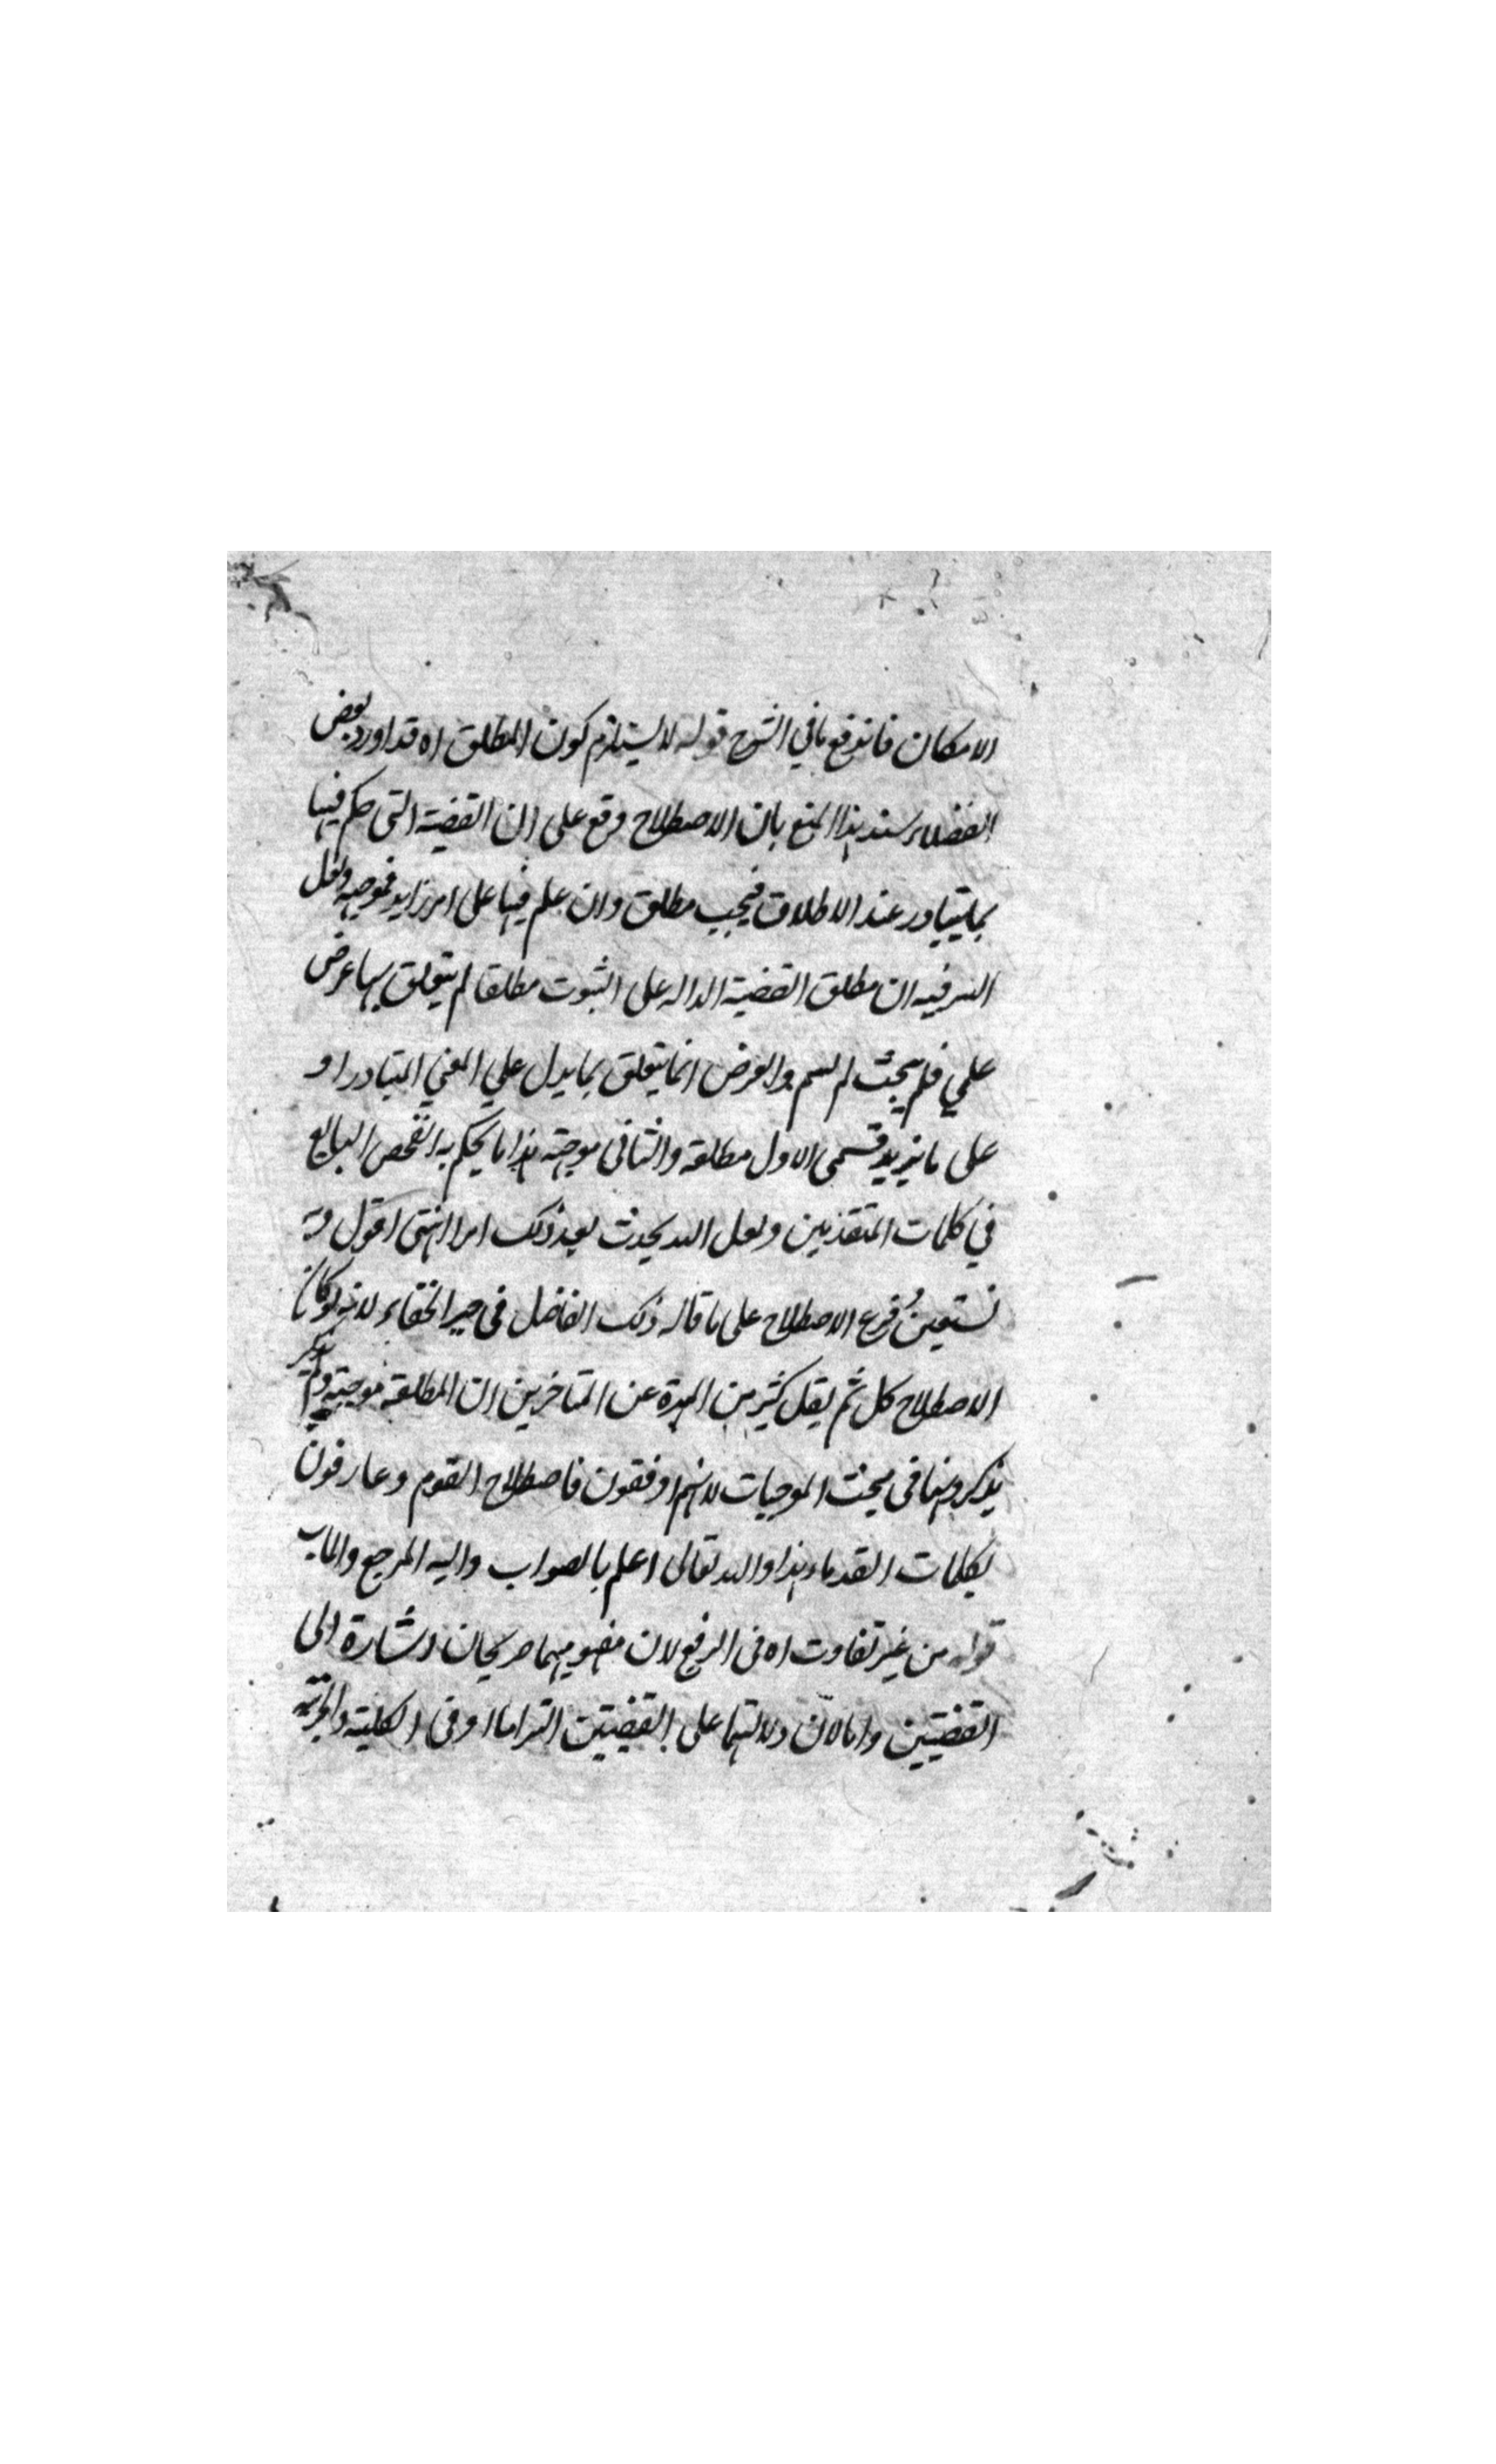 الامكان فاندفع ما في الشرح قوله لا يستلزم كون المطلق اه قد اورد بعض
الفضلاء سند هذا المنع بان الاصطلاح وقع على ان القضية التى حكم فيها
بما يتبادر عند الاطلاق فيجب مطلق وان علم فيها على امر زايد فموجهة ولعل
السر فيه ان مطلق القضية الدالة على الثبوت مطلقا لم يتعلق بها غرض
علمي فلم يبحث لم يسم والغرض انما يتعلق بما يدل علي المعني المتبادر او
على ما يزيد فسمى الاول مطلقة والثانى موجهة هذا ما يحكم به التفحص البالغ
في كلمات المتقدمين ولعل الله يحدث بعد ذلك امرا انتهى اقول وبه
نستعين فرع الاصطلاح على ما قاله ذلك الفاضل فى حيز الخفاء لانه لو كان
الاصطلاح كل ثم يقل كثير من المهرة عن المتاخرين ان المطلقة موجهة ولم
يذكروها فى مبحث الموجهات لانهم اوفقون فاصطلاح القوم وعارفون
بكلمات القدماء هذا والله تعالى اعلم بالصواب واليه المرجع والماب
قوله من غير تفاوت اه فى الرفع لان مفهوميهما صريحان اشارة الى
القضيتين وامالان دلالتهما على القضيتين التزاما او فى الكلية والجزئية